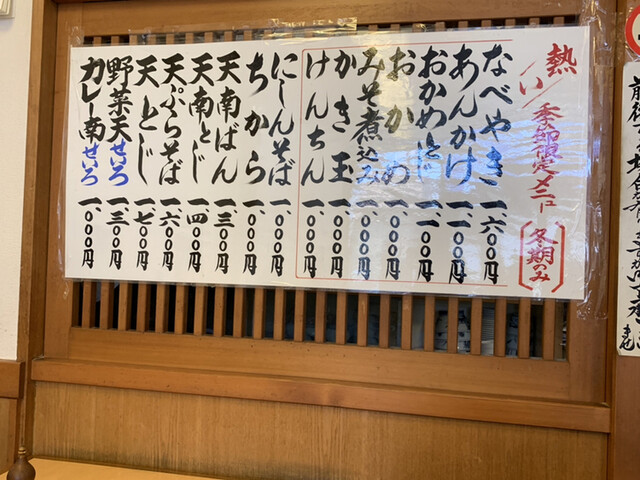 熱い季節限定メニュー〔冬期のみ〕
なべやき 一、六〇〇円
あんかけ
おかめとじ
おかめ 一、〇〇〇円
みそ煮込み 一、〇〇〇円
かき玉 一、〇〇〇円
けんちん 一、〇〇〇円
にしんそば 一、〇〇〇円
ちから 一、〇〇〇円
天南ばん 一、三〇〇円
天南とじ 一、四〇〇円
天ぷらそば 一、六〇〇円
天とじ 一、七〇〇円
野菜天せいろ 一、三〇〇円
カレー南せいろ 一、〇〇〇円